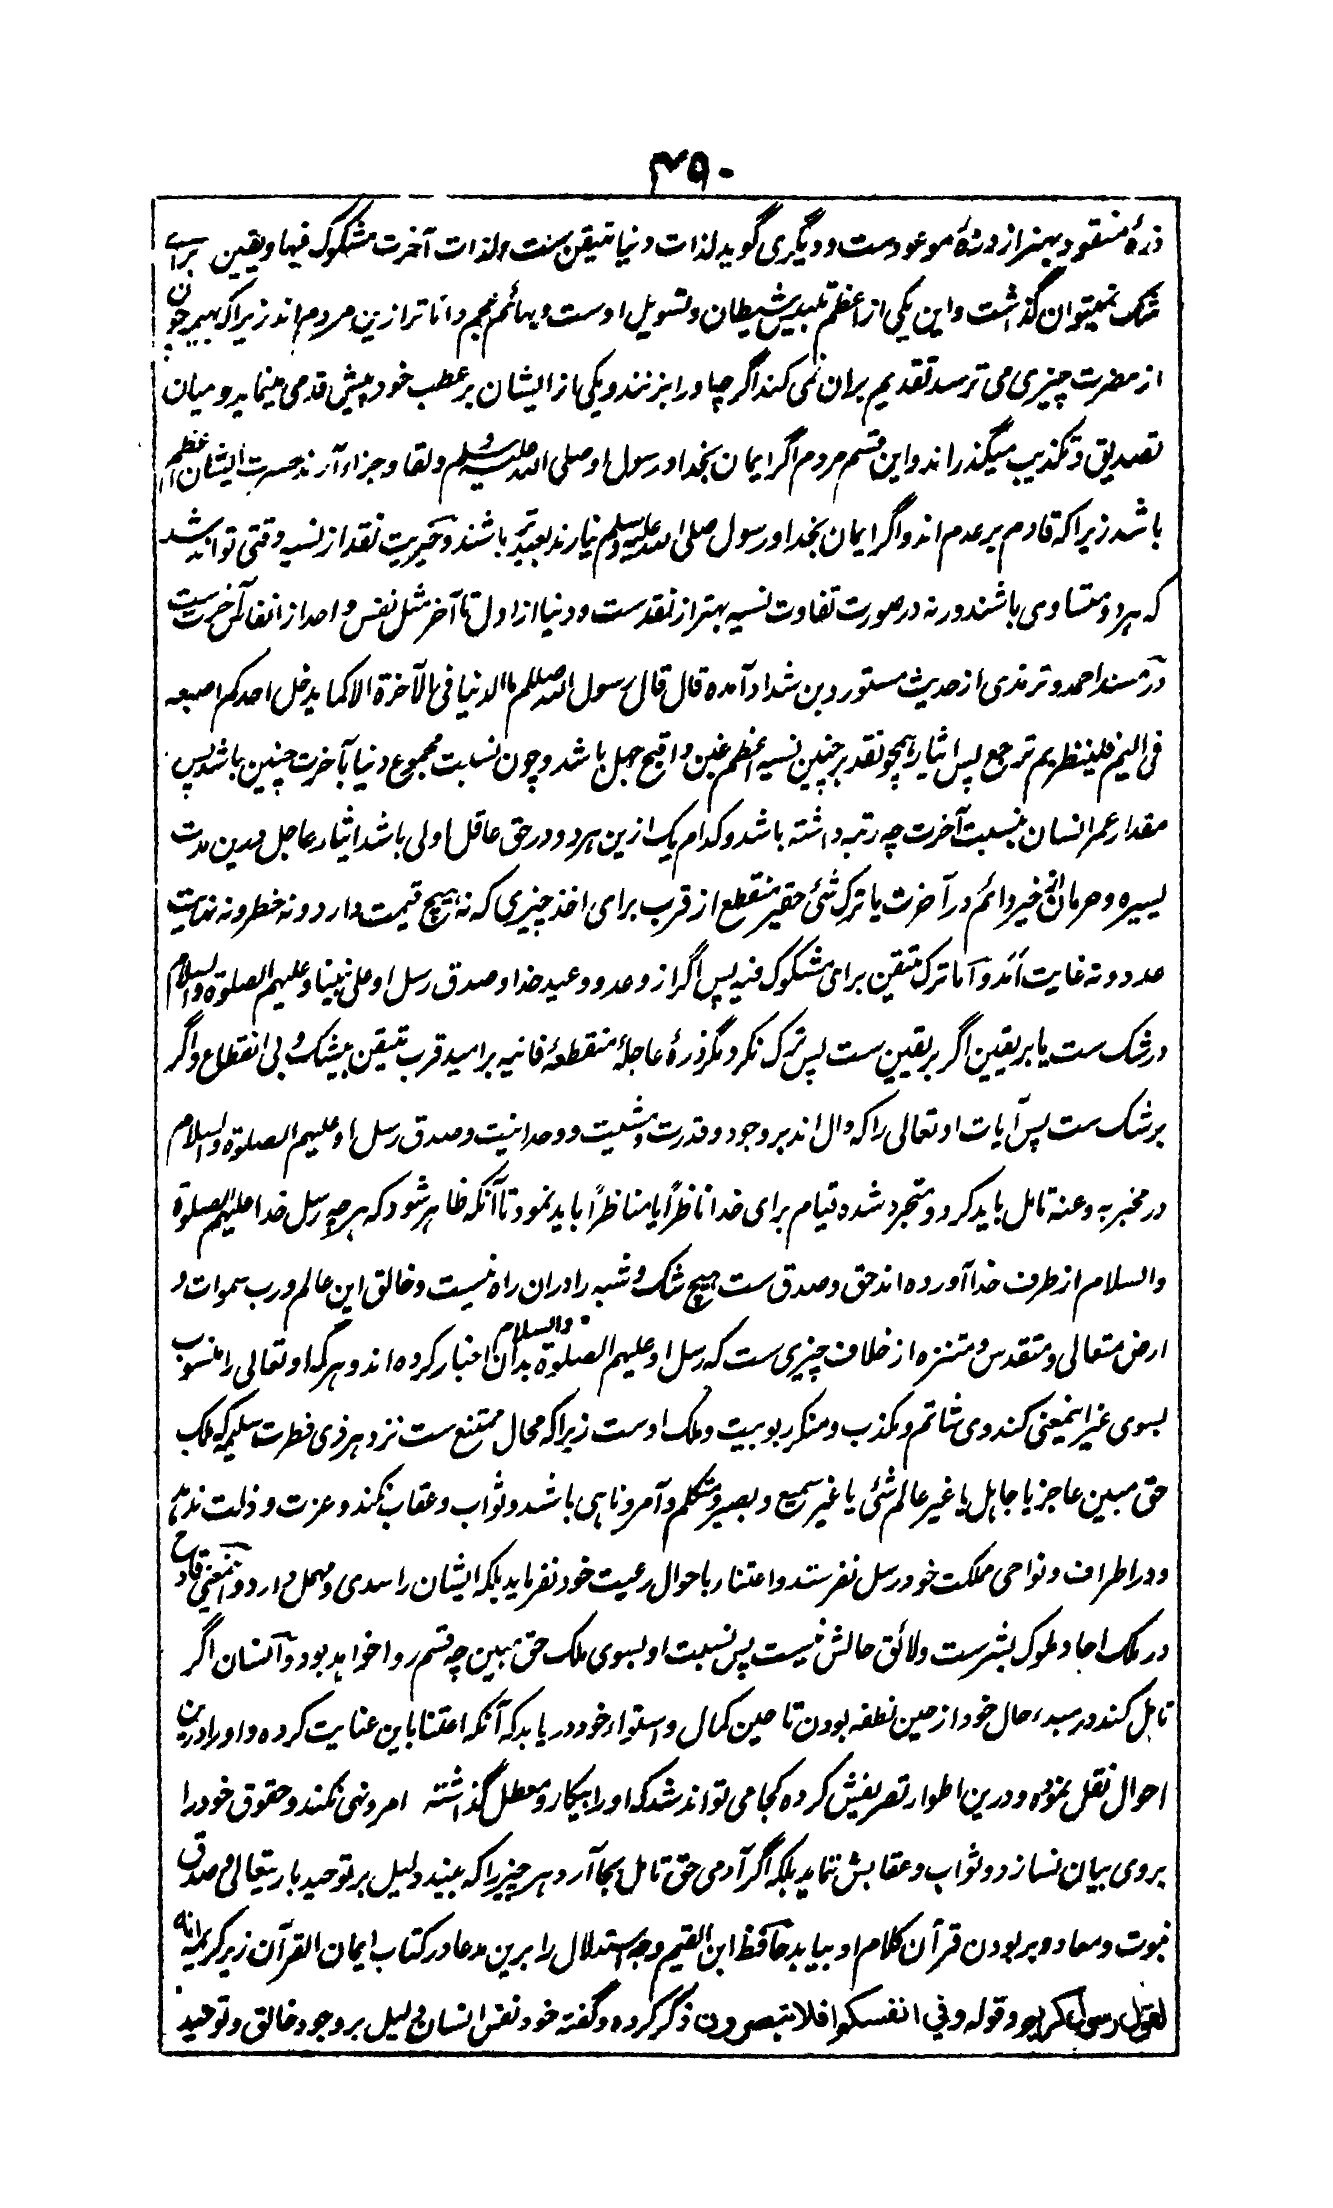 ۳۵۰
ذرهٔ منقود بهتر از درهٔ موعودست و دیگری گوید لذات دنیا متیقن ست ولذات آخرت مشکوک فیها و یقین برای
شک نمیتوان گذاشت و این یکی از اعظم تلبیس شیطان و تسویل اوست و بهائم عجم داناتر ازین مردم اند زیراکه بهیمه چون
از مضرت چیزی می ترسد تقدیم بران نمی کند اگرچه اورا بزنند و یکی از ایشان بر عطب خود پیش قدمی مینماید و میان
تصدیق و تکذیب میگذراند و این قسم مردم اگر ایمان بخدا و رسول او صلی الله علیه وسلم و لقا و جزاء آرند حسرت ایشان اعظم
باشد زیراکه قادم بر عدم اند و اگر ایمان بخدا و رسول صلی الله علیه وسلم نیارند بعیدتر باشند و خیریت نقد از نسیه وقتی تواند شد
که هر دو متساوی باشند ورنه در صورت تفاوت نسیه بهتر از نقدست و دنیا از اول تا آخر مثل نفس واحد از انفاس آخرت ست
در مسند احمد و ترمذی از حدیث مستورد بن شداد آمده قال قال رسول الله صللم ما الدنیا فی الآخرة الا کما یدخل احدکم اصبعه
فی الیم فلینظر بم ترجع پس ایثار همچو نقد بر چنین نسیه اعظم غبن و اقبح جهل باشد و چون نسبت مجموع دنیا بآخرت چنین باشد پس
مقدار عمر انسان بنسبت آخرت چه رتبه داشته باشد و کدام یک ازین هر دو در حق عاقل اولی باشد ایثار عاجل درین مدت
یسیره و حرمان از خیر دائم در آخرت یا ترک شئ حقیر منقطع از قرب برای اخذ چیزی که نه هیچ قیمت دارد و نه خطر و نه نهایت
عدد و نه غایت امد و اما ترک متیقن برای مشکوک فیه پس اگر از وعد و وعید خدا و صدق رسل او علی نبینا و علیهم الصلوة والسلام
در شک ست یا بر یقین اگر بر یقین ست پس ترک نکرد مگر ذرهٔ عاجلهٔ منقطعهٔ فانیه بر امید قرب متیقن بیشک و بی انقطاع و اگر
بر شک ست پس آیات او تعالی را که دال اند بر وجود و قدرت و مشیت و وحدانیت و صدق رسل او علیهم الصلوة والسلام
در مخبر به و عنه تامل باید کرد و متجرد شده قیام برای خدا ناظراً یا مناظراً باید نمود تا آنکه ظاهر شود که هرچه رسل خدا علیهم الصلوة
والسلام از طرف خدا آورده اند حق و صدق ست هیچ شک و شبه را دران راه نیست و خالق این عالم و رب سموات و
ارض متعالی و متقدس و متنزه از خلاف چیزی ست که رسل او علیهم الصلوة والسلام بدان اخبار کرده اند و هرکه او تعالی را منسوب
بسوی غیر اینمعنی کند وی شاتم و مکذب و منکر ربوبیت و ملک اوست زیراکه محال ممتنع ست نزد هر ذی فطرت سلیمه که ملک
حق مبین عاجز یا جاهل یا غیر عالم شئ یا غیر سمیع و بصیر و متکلم و آمر و ناهی باشد و ثواب و عقاب نکند و عزت و ذلت ندهد
و در اطراف و نواحی مملکت خود رسل نفرستد و اعتناء باحوال رعیت خود نفرماید بلکه ایشان را سدی و مهمل دارد و اینمعنی قادح
در ملک احاد ملوک بشرست و لائق حالش نیست پس نسبت او بسوی ملک حق مبین چه قسم روا خواهد بود و انسان اگر
تامل کند در مبدء حال خود از حین نطفه بودن تا حین کمال و استواء خود دریابد که آنکه اعتنا باین عنایت کرده و اورا درین
احوال نقل نموده و درین اطوار تصریفش کرده کجا می تواند شد که اورا بیکار و معطل گذاشته امر و نهی نکند و حقوق خود را
بروی بیان نسازد و ثواب و عقابش ننماید بلکه اگر آدمی حق تامل بجا آرد هر چیزرا که بیند دلیل بر توحید باریتعالی و صدق
نبوت و معاد و بر بودن قرآن کلام او بیابد حافظ ابن القیم وجه استدلال را برین مدعا در کتاب ایمان القرآن زیر کریمه انه
لقول رسول کریم و قوله وفی انفسکم افلا تبصرون ذکر کرده و گفته خود نفس انسان دلیل بر وجود خالق و توحید